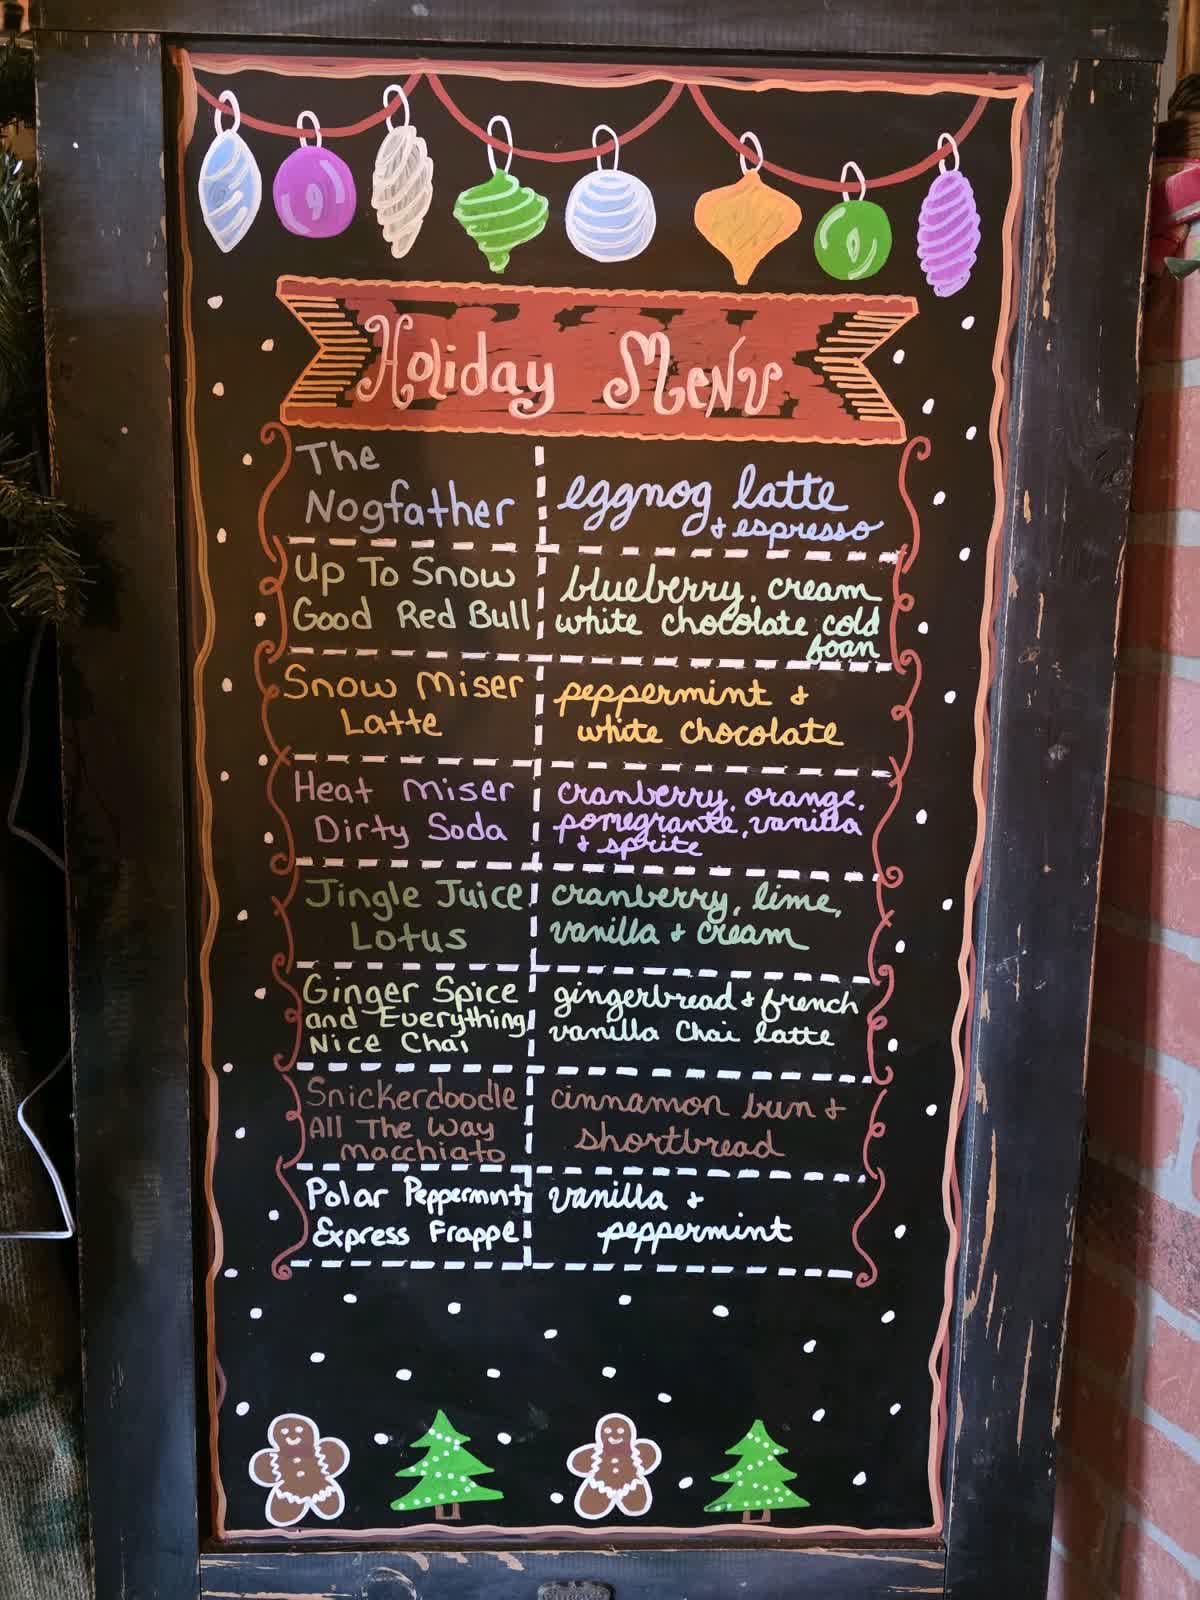 Holiday Menu
The
Nogfather
eggnog latte
& espresso
Up To Snow
Good Red Bull
blueberry, cream
white chocolate cold
foan
Snow Miser
Latte
peppermint &
white chocolate
Heat Miser
Dirty Soda
cranberry, orange,
pomegrante, vanilla
& sprite
Jingle Juice
Lotus
cranberry, lime,
vanilla & cream
Ginger Spice
and Everything
Nice Chai
gingerbread & french
vanilla Chai latte
Snickerdoodle
All The Way
macchiato
cinnamon bun &
shortbread
Polar Peppermnt
Express Frappe
vanilla &
peppermint